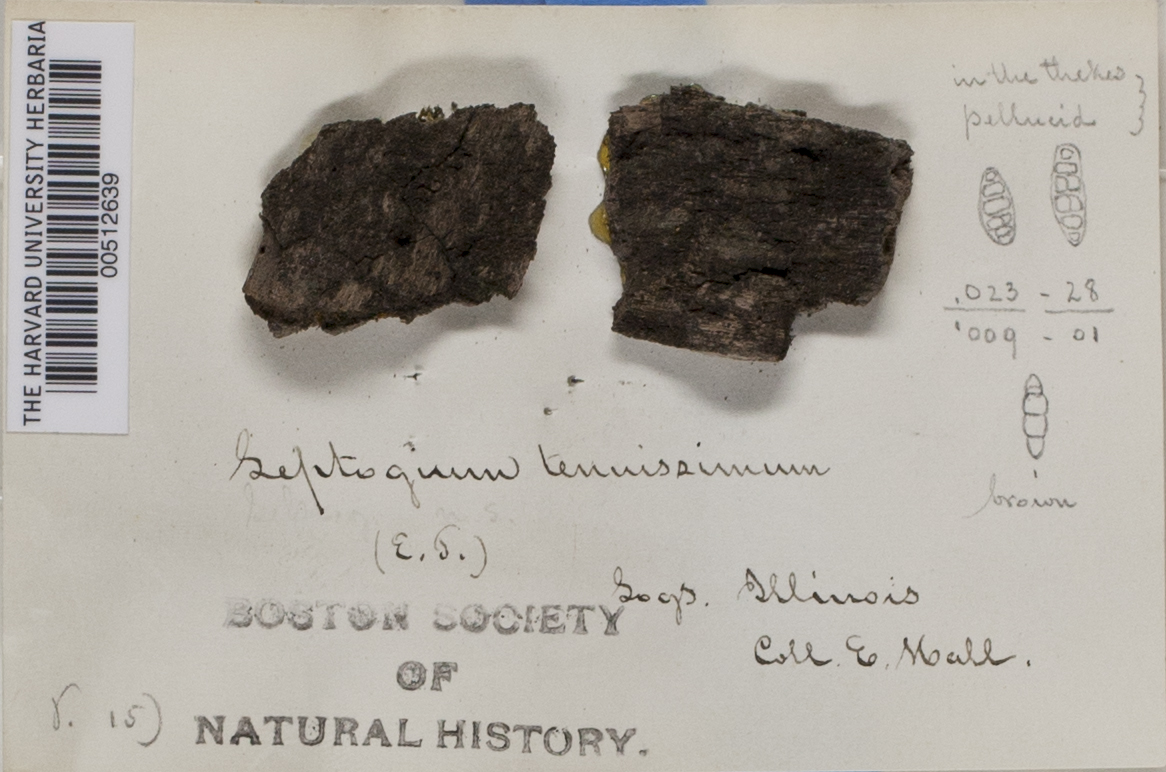 THE HARVARD UNIVERSITY HERBARIA
00512639
in the thekes
pellucid
.023 - 28
.009 - 01
brown
Leptogium tenuissimum
(E. T.)
Logs. Illinois
Coll. E. Hall.
BOSTON SOCIETY
OF
NATURAL HISTORY.
15)